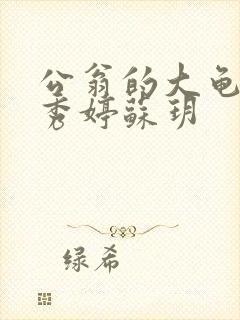 公翁的大龟
秀婷苏玥
绿希